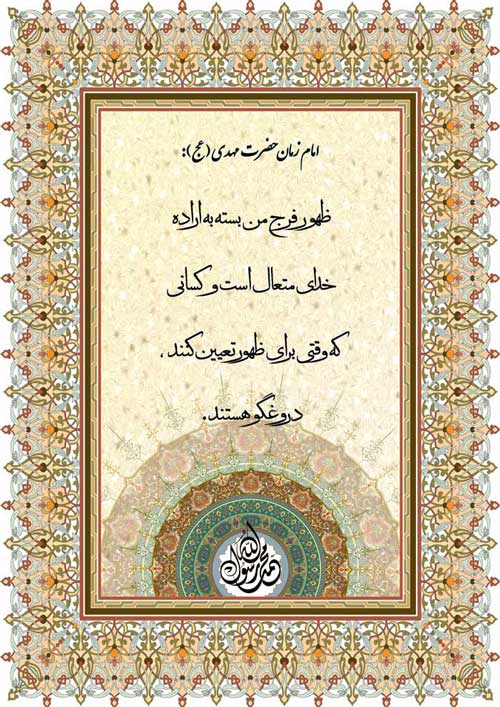 امام زمان حضرت مهدی (عج):
ظهور فرج من بسته به اراده
خدای متعال است و کسانی
که وقتی برای ظهور تعیین کنند،
دروغگو هستند.
محمد رسول الله